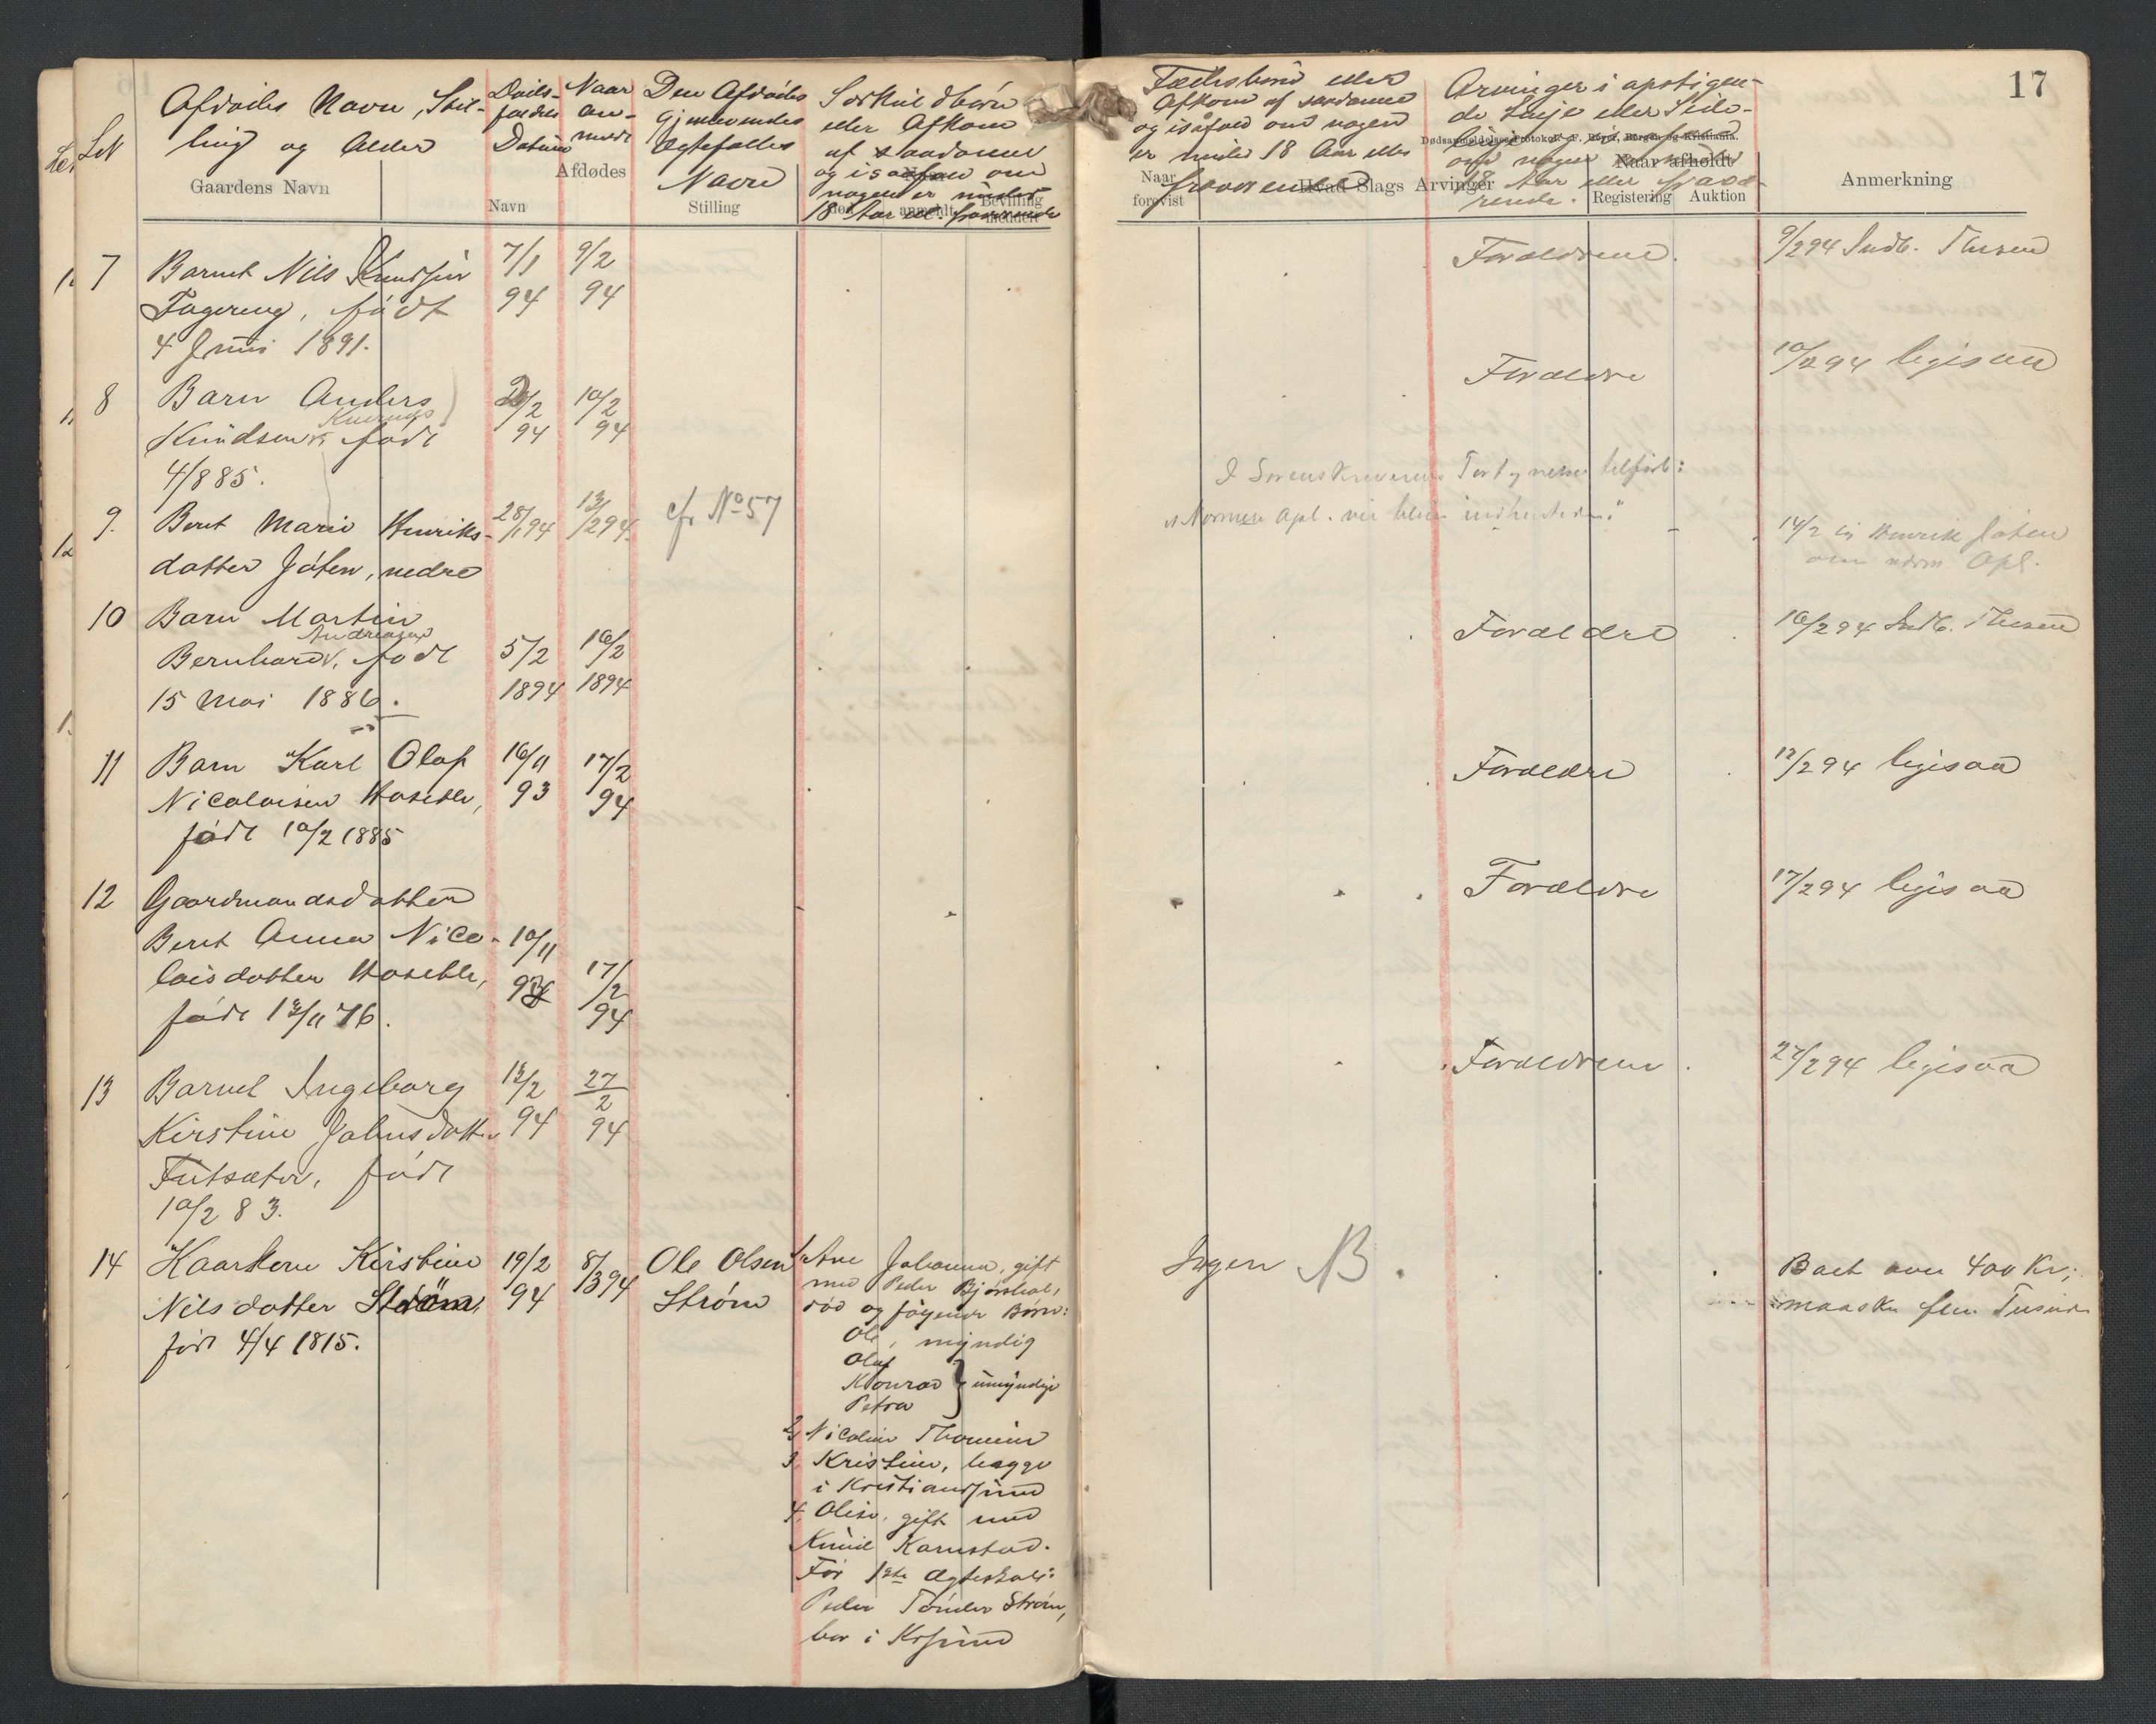 17
Afdødes Navn, Stil-
ling og Alder
Gaardens Navn
Døds-
faldets
Datum
Naar
an-
meldt
Afdødes
Navn
Den Afdødes
gjenlevendes
Ægtefælles
Navn
Stilling
Særkuldbørn
eller Afkom
af saadanne
og isåfald om
nogen er under
18 Aar ell. fraværende
anmeldt
Bevilling
meddelt
Fællesbørn eller
Afkom af saadanne
og isåfald om nogen
er under 18 Aar eller
fraværende
Naar
forevist
Hvad Slags Arvinger
Arvinger i opstigen-
de Linje eller Side-
Dødsanmeldelses-Protokol F. Beyer, Bergen og Kristiania.
om nogen er under
18 Aar eller fravæ-
rende.
Naar afholdt
Registering Auktion
Anmerkning
7 Barnet Nils Knudsen 7/1 9/2 Forældrene. 9/2 94 Indb. Thesen
Fagereng, født 94 94
4 Juni 1891.
8 Barn Anders 2/2 10/2 Forældre 10/2 94 ligesaa
Knudsen født 94 94
4/8 85.
I Sorenskriverens Forhyrelse tilført:
9. Beret Marie Henriks- 28/1 94 13/2 94 cfr No 57
datter Jøten, nedre 14/2 Henrik Jøten
om nærm. Opl.
10 Barn Martin
Andreasen
Bernhard, født 5/2 16/2 Forældre 16/2 94 Indb. Thesen
15 Mai 1886. 1894 1894
11 Barn Karl Olaf 16/11 17/2 Forældre 17/2 94 ligesaa
Nicolaisen Hoseth, 93 94
født 10/2 1885
12 Gaardmandsdatter Forældre 17/2 94 ligesaa
Beret Anna Nico- 10/11
laisdatter Hoseth, 93 17/2
født 13/11 76. 94
13 Barnet Ingeborg 13/2 27/2 Forældrene 27/2 94 ligesaa
Kirstine Johnsdatter 94 94
Futsæter, født
10/2 83.
14 Kaarkone Kirstine 19/2 8/3 94 Ole Olsen 1, Ane Johanna, gift Ingen B. Boet over 400 Kr;
Nilsdatter Strøm, 94 Strøm med Peder maaske flere Tusinde
født 4/4 1815. død og følgende Børn:
Ole, myndig
Olaf
Konrad } umyndige
Petra
2, Nicoline Thomine
3, Kristine, begge
i Kristiansund
4, Oline, gift med
Knud Karnstad.
Før 1ste Ægteskab:
Peder Tønder Strøm,
bor i Krsund